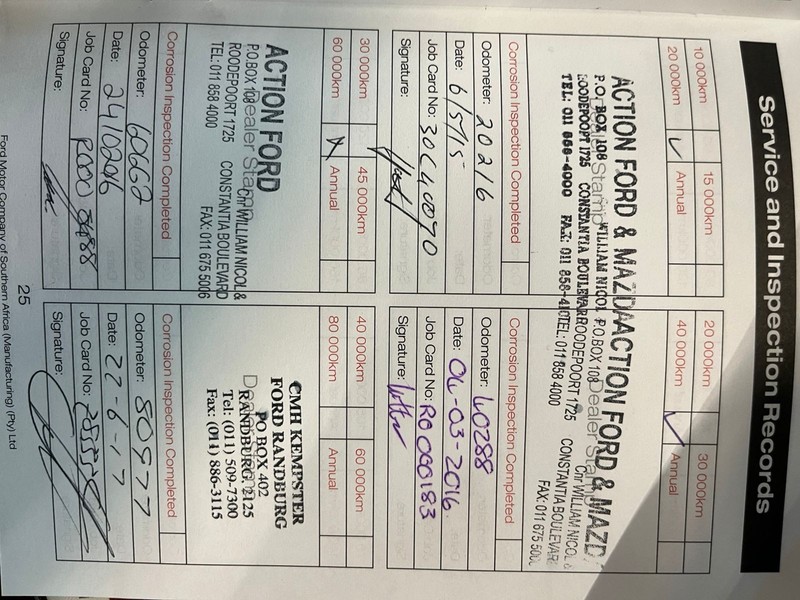 Service and Inspection Records
10 000km 15 000km
20 000km ✓ Annual
ACTION FORD & MAZDA
P.O. BOX 108 WILLIAM NICOL
ROODEPOORT 1725 CONSTANTIA BOULEVARD
TEL: 011 858-4000 FAX: 011 858-410
Corrosion Inspection Completed
Odometer: 20216
Date: 6/5/15
Job Card No: 30C40090
Signature:
20 000km 30 000km
40 000km ✓ Annual
ACTION FORD & MAZD
P.O.BOX 108 Dealer Cnr WILLIAM NICOL &
ROODEPOORT 1725 CONSTANTIA BOULEVAR
TEL: 011 858 4000 FAX: 011 675 500
Corrosion Inspection Completed
Odometer: 40288
Date: 04-03-2016
Job Card No: RO000183
Signature:
30 000km 45 000km
60 000km X Annual
ACTION FORD
P.O.BOX 108 Dealer Stamp Cnr WILLIAM NICOL &
ROODEPOORT 1725 CONSTANTIA BOULEVARD
TEL: 011 858 4000 FAX: 011 675 5006
Corrosion Inspection Completed
Odometer: 60662
Date: 2410206
Job Card No:
Signature:
40 000km 60 000km
80 000km Annual
CMH KEMPSTER
FORD RANDBURG
PO BOX 402
RANDBURG. 2125
Tel: (011) 509-7300
Fax: (011) 886-3115
Corrosion Inspection Completed
Odometer: 80977
Date: 22-6-17
Job Card No:
Signature:
25
Ford Motor Company of Southern Africa (Manufacturing) (Pty) Ltd